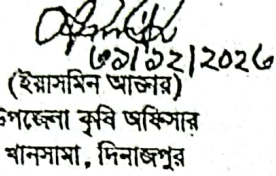 ৩১/১২/২০২৫
(ইয়াসমিন আক্তার)
উপজেলা কৃষি অফিসার
খানসামা, দিনাজপুর